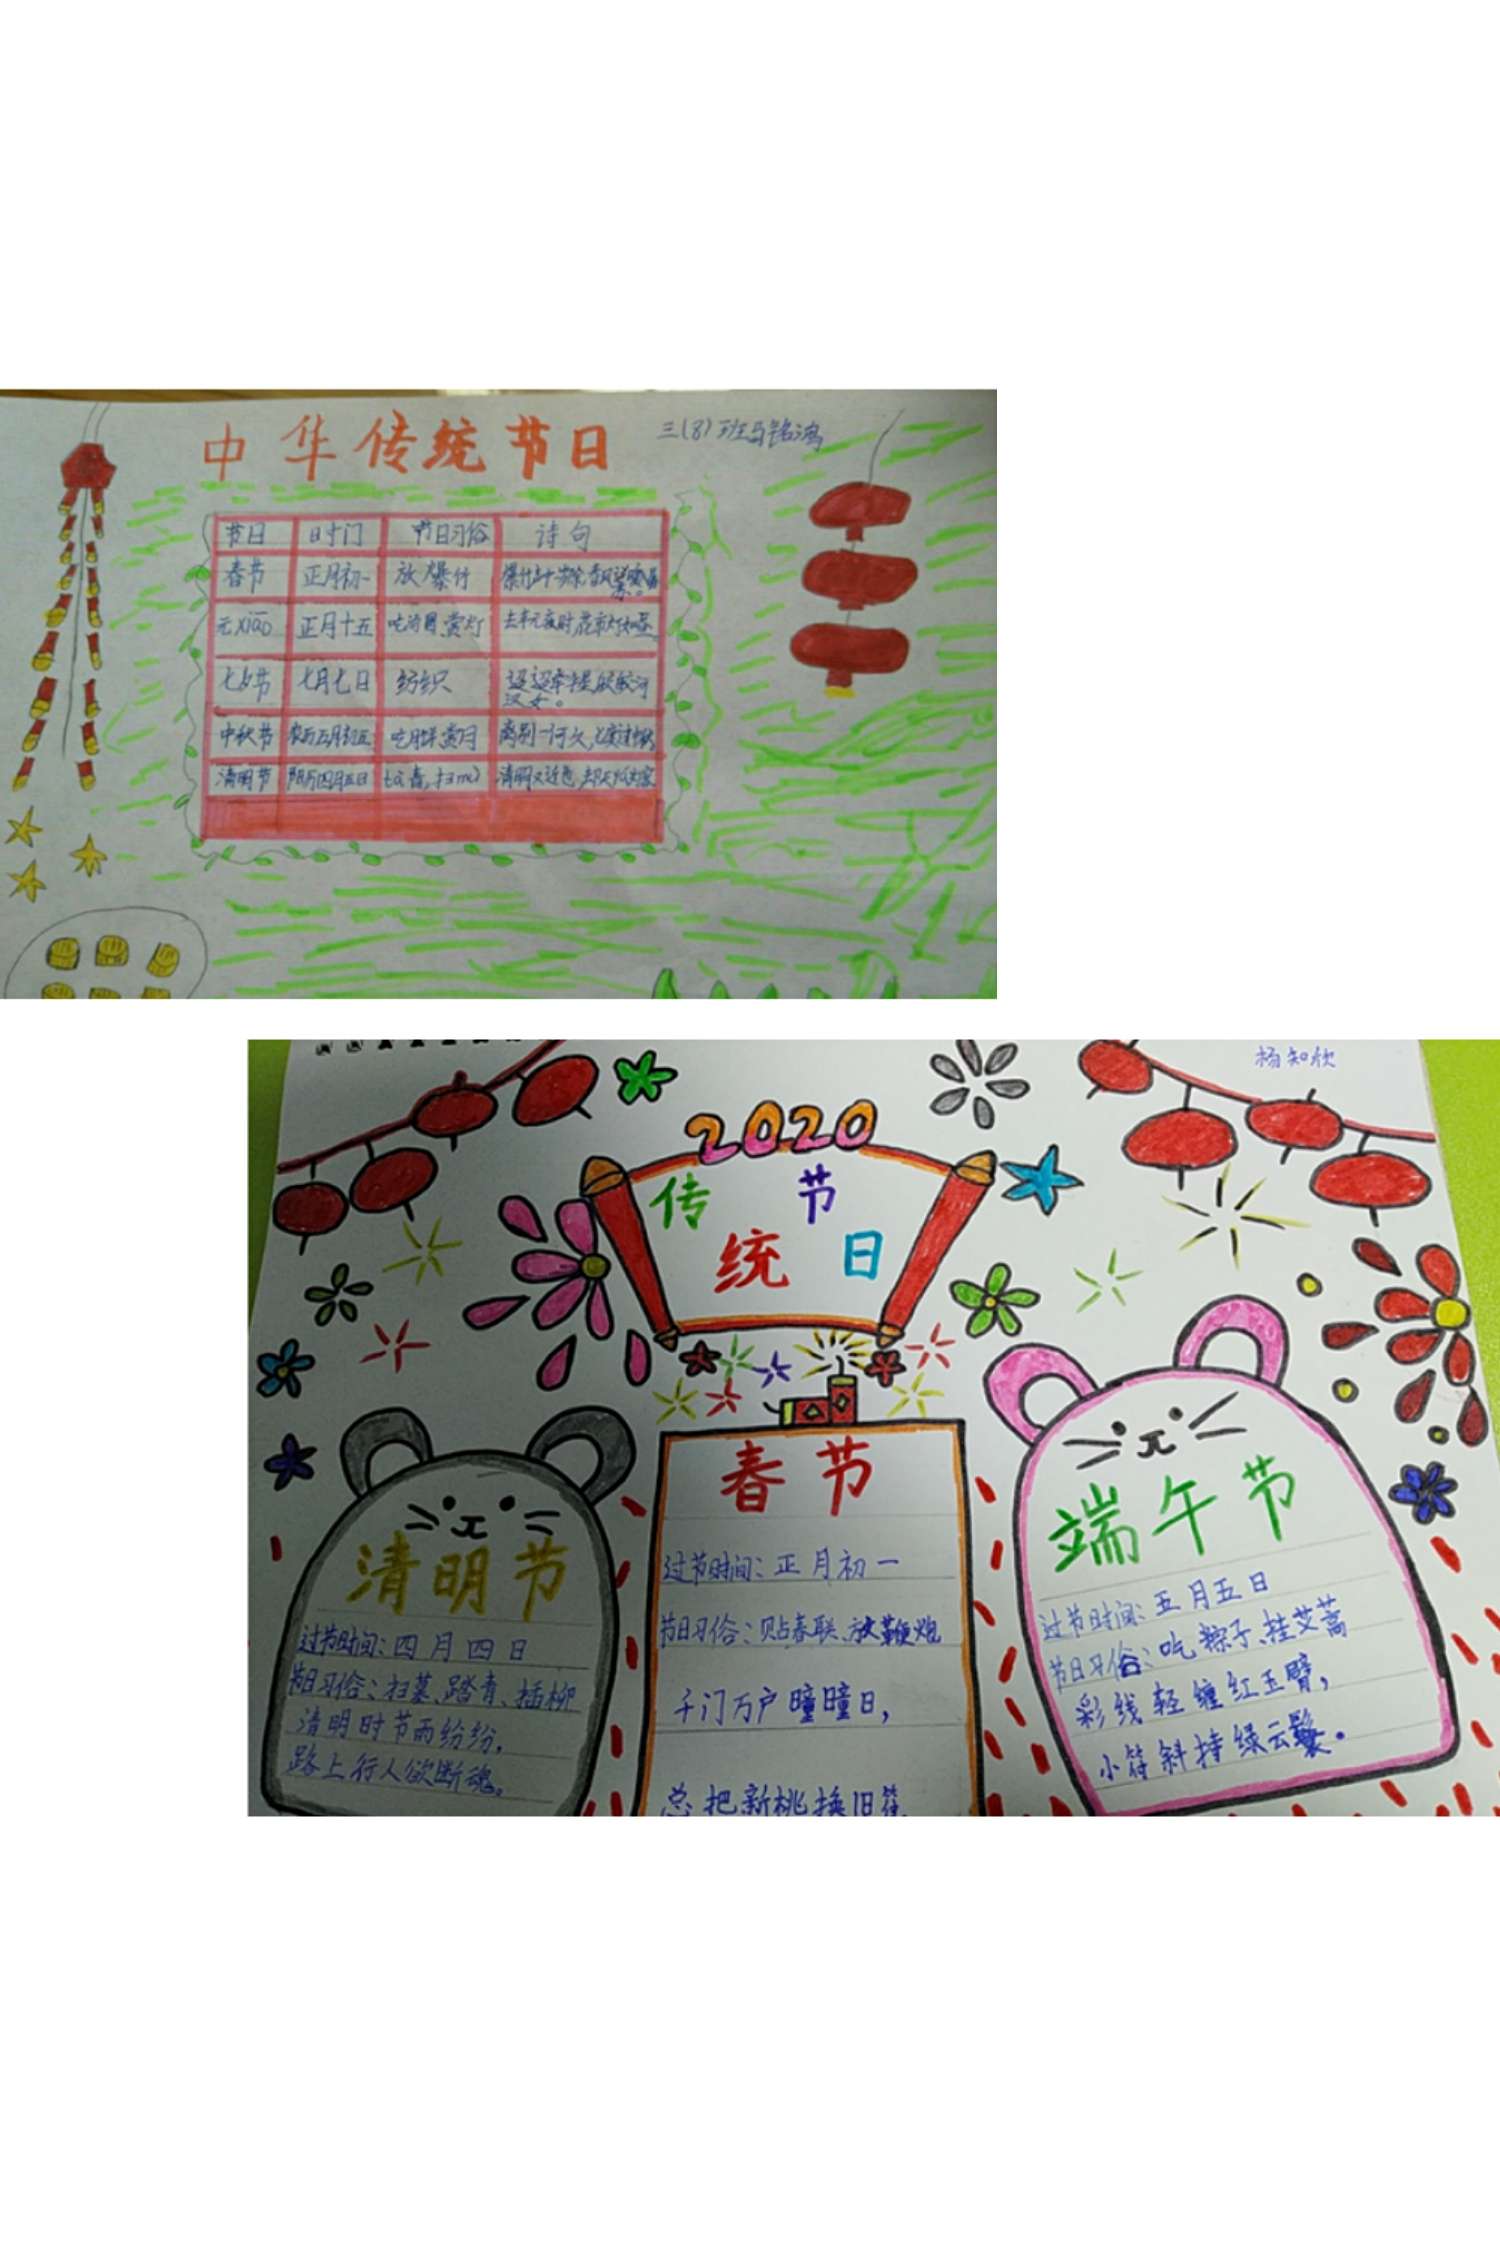 中华传统节日
三(8)班马铭鸿
节日 时门 节日习俗 诗句
春节 正月初一 放爆竹
元xiāo 正月十五 赏灯
七夕节 七月七日 纺织 迢迢牵牛星皎皎河
汉女。
中秋节 农历五月初五 吃月饼赏月 离别一何久,七度过中秋
清明节 阳历四月五日
杨知欣
2020
传统节日
清明节
过节时间:四月四日
节日习俗:扫墓、踏青、插柳
清明时节雨纷纷,
路上行人欲断魂。
春节
过节时间:正月初一
节日习俗:贴春联、放鞭炮
千门万户曈曈日,
总把新桃换旧符
端午节
过节时间:五月五日
节日习俗:吃粽子、挂艾蒿
彩线轻缠红玉臂,
小符斜挂绿云鬟。